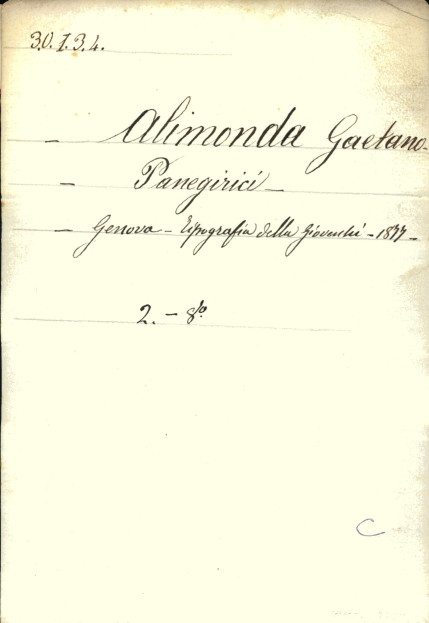 30.I.3.4.
— Alimonda Gaetano —
— Panegirici —
— Genova — Tipografia della Gioventù — 1877 —
2. — 8vo.
C